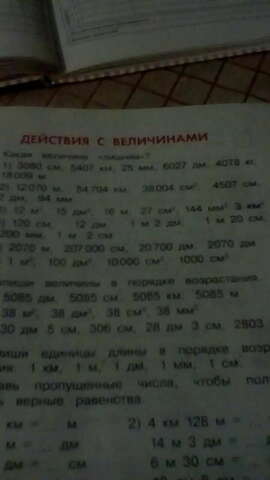 ДЕЙСТВИЯ С ВЕЛИЧИНАМИ
Какая величина «лишняя»?
1) 3080 см, 5407 км, 25 мм, 6027 дм, 4078 кг,
18 009 м.
2) 12 070 м, 54 704 км, 38 004 см², 4507 см,
2 дм, 94 мм.
3) 12 м², 15 дм², 16 м, 27 см², 144 мм², 3 км²
120 см, 12 дм, 1 м 2 дм, 1 м 20 см,
200 мм, 1 м 2 см.
2070 м, 207 000 см, 20 700 дм, 2070 дм
1 м², 100 дм², 10 000 см², 1000 см²
величины в порядке возрастания.
5085 дм, 5085 см, 5085 км, 5085 м
38 м², 38 дм², 38 см², 38 мм²
30 дм 5 см, 306 см, 28 дм 3 см, 2803
единицы длины в порядке
1 км, 1 м, 1 дм, 1 мм, 1 см.
пропущенные числа, чтобы
верные равенства.
км = м 2) 4 км 128 м =
м = ... дм 14 м 3 дм =
дм = см 6 м 30 см =